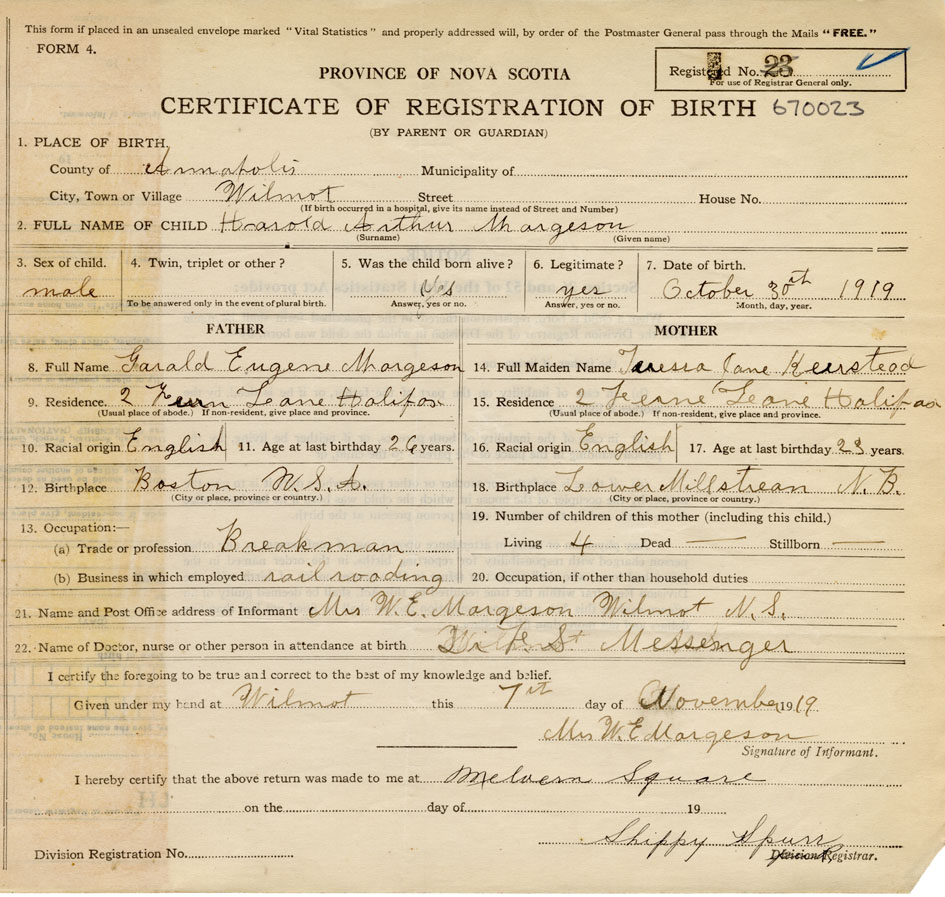 This form if placed in an unsealed envelope marked "Vital Statistics" and properly addressed will, by order of the Postmaster General pass through the Mails "FREE."
FORM 4.
Registered No. 23
For use of Registrar General only.
PROVINCE OF NOVA SCOTIA
CERTIFICATE OF REGISTRATION OF BIRTH 670023
(BY PARENT OR GUARDIAN)
1. PLACE OF BIRTH,
County of Annapolis Municipality of
City, Town or Village Wilmot Street House No.
(If birth occurred in a hospital, give its name instead of Street and Number)
2. FULL NAME OF CHILD Harold Arthur Margeson
(Surname) (Given name)
3. Sex of child. 4. Twin, triplet or other? 5. Was the child born alive? 6. Legitimate? 7. Date of birth.
male Yes yes October 30st 1919
To be answered only in the event of plural birth. Answer, yes or no. Answer, yes or no. Month, day, year.
FATHER MOTHER
8. Full Name Garald Eugene Margeson 14. Full Maiden Name Jane
9. Residence. 2 Lane Halifax 15. Residence 2 Lane Halifax
(Usual place of abode.) If non-resident, give place and province. (Usual place of abode.) If non-resident, give place and province.
10. Racial origin English 11. Age at last birthday 26 years. 16. Racial origin English 17. Age at last birthday 23 years.
12. Birthplace Boston U.S.A. 18. Birthplace Lower Millstrean N.B.
(City or place, province or country.) (City or place, province or country.)
13. Occupation:— 19. Number of children of this mother (including this child.)
(a) Trade or profession Breakman Living 4 Dead — Stillborn —
(b) Business in which employed railroading 20. Occupation, if other than household duties
21. Name and Post Office address of Informant Mrs W.E. Margeson Wilmot N.S.
22. Name of Doctor, nurse or other person in attendance at birth Messenger
I certify the foregoing to be true and correct to the best of my knowledge and belief.
Given under my hand at Wilmot this 7st day of November 1919.
Mrs W.E Margeson
Signature of Informant.
I hereby certify that the above return was made to me at Melvern Square
on the day of 19
Shippy Spurr
Division Registration No. Division Registrar.